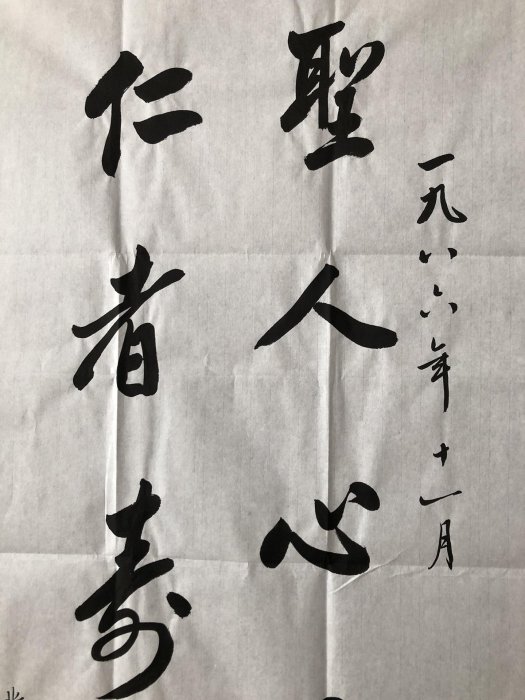 一九八六年十一月
聖人心
仁者寿